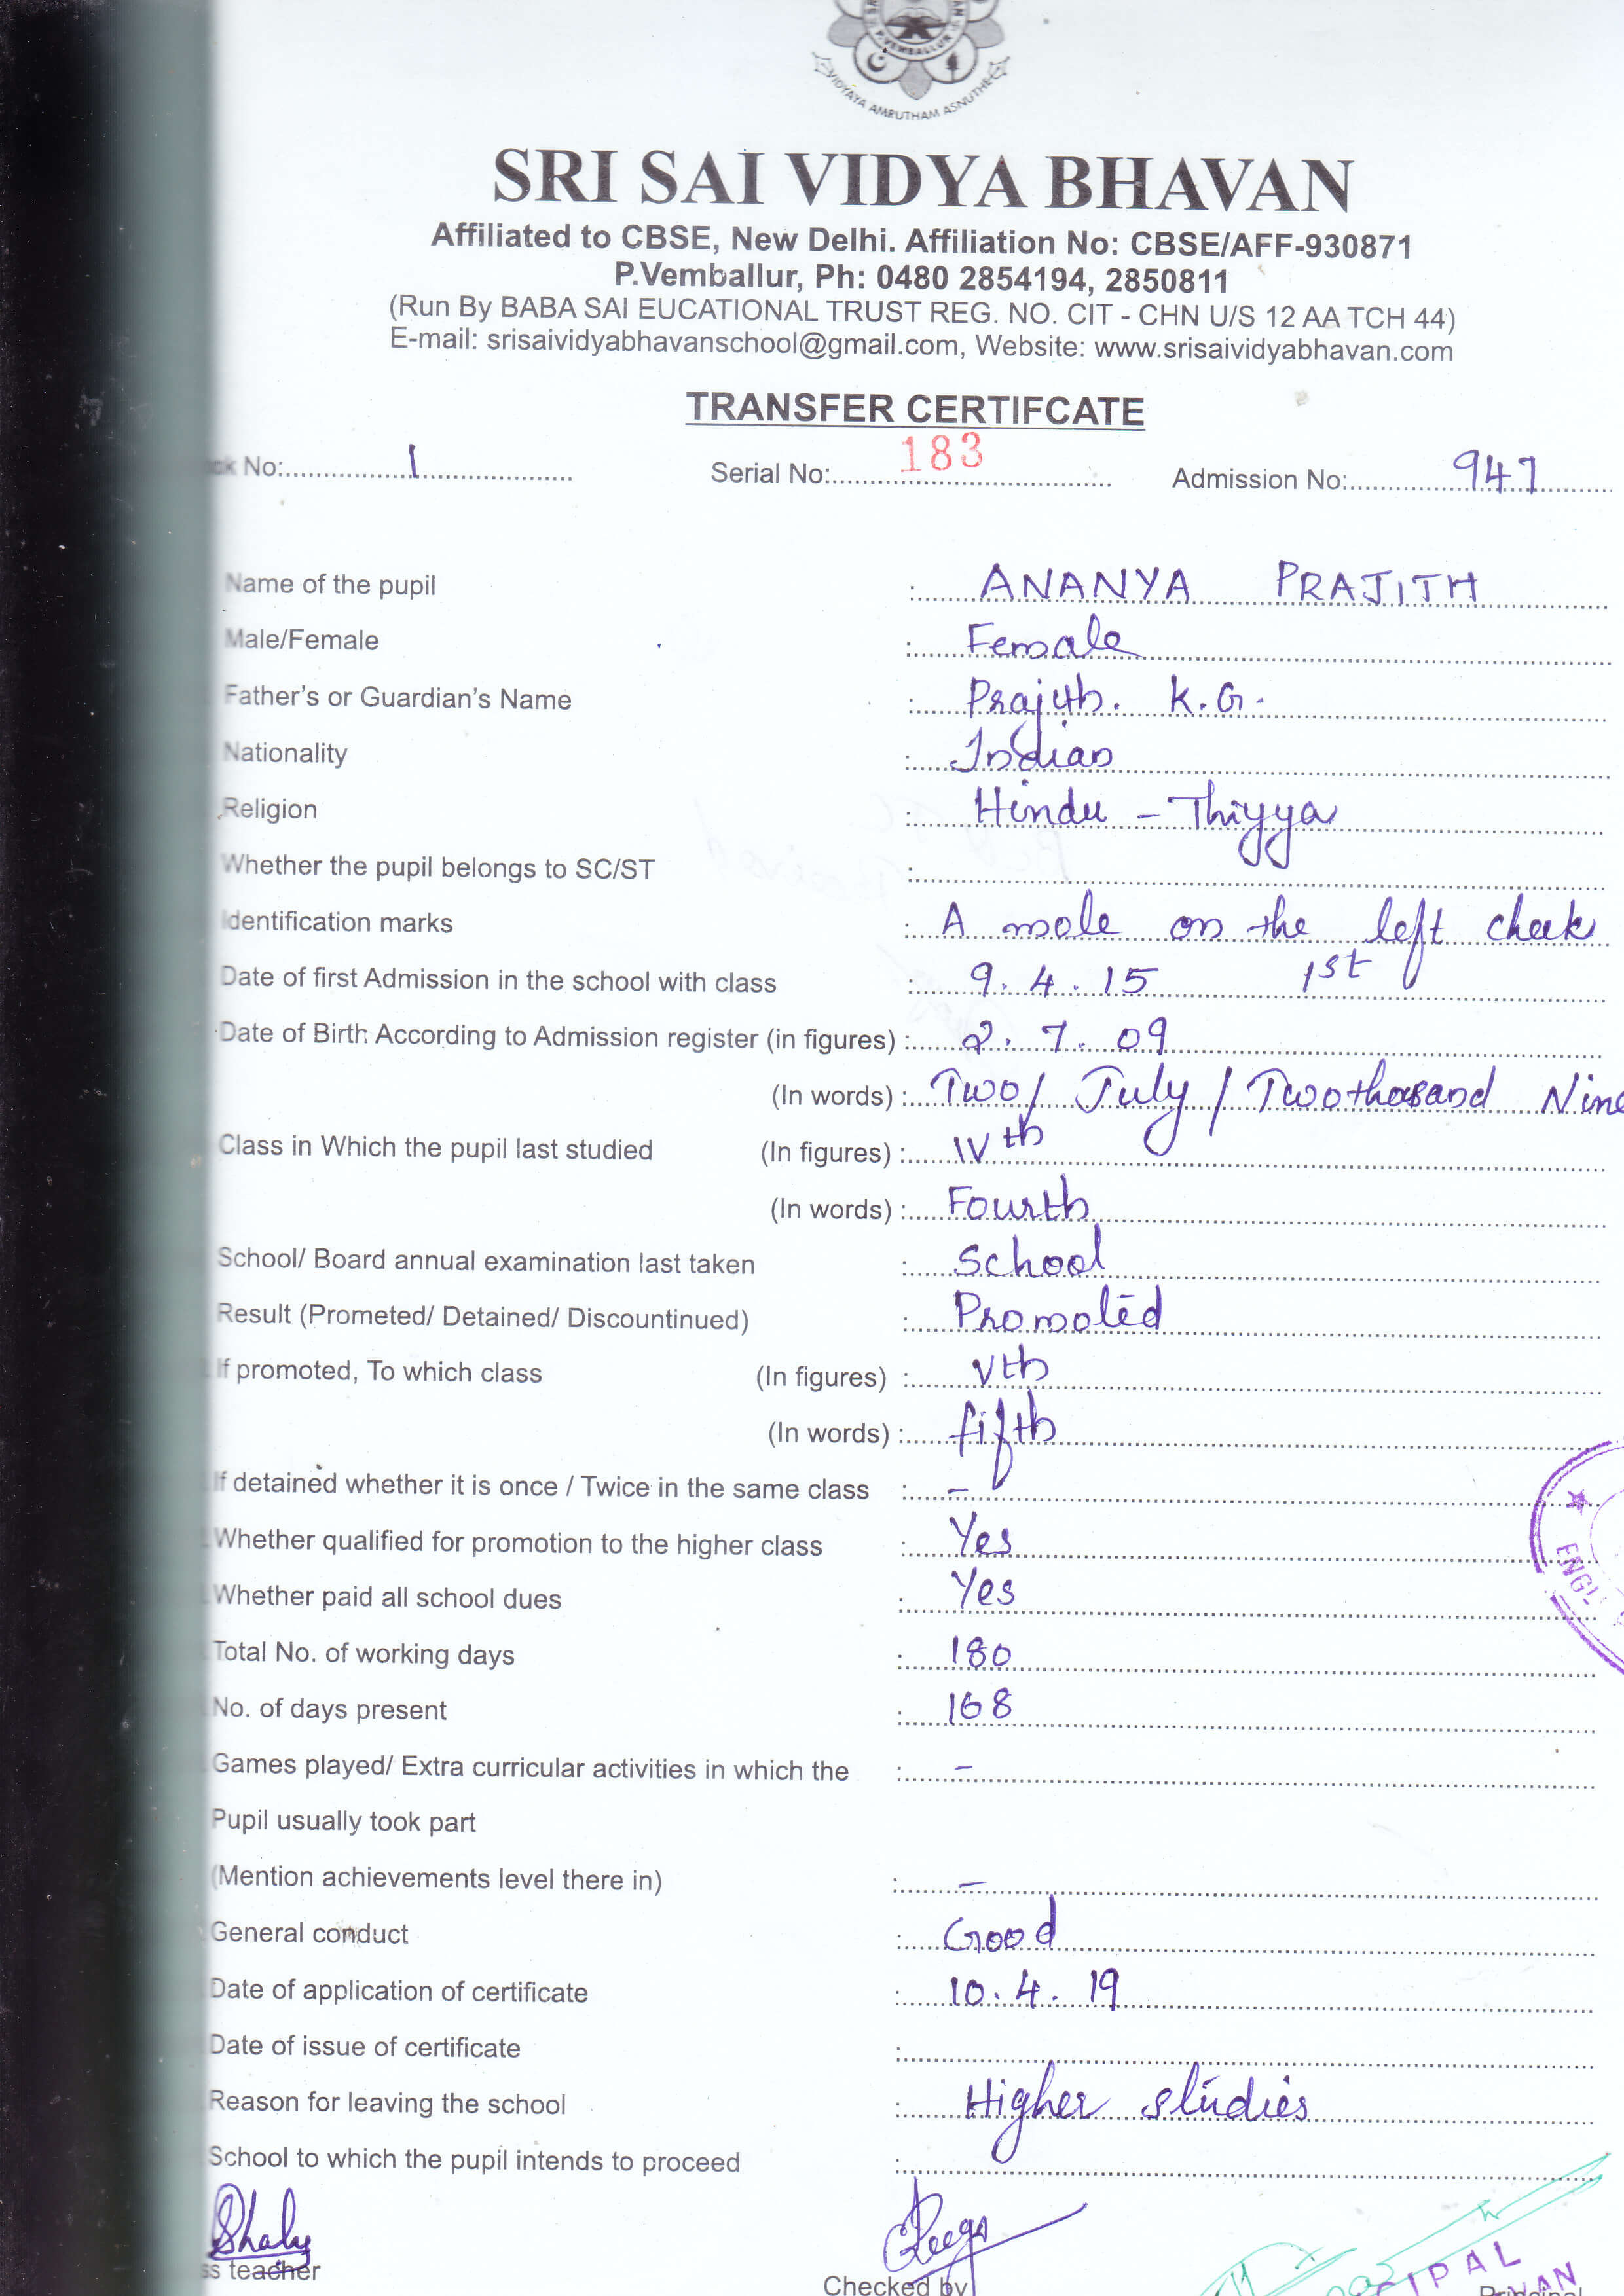 P.VEMBALLUR
VIDYAYA AMRUTHAM ASNUTHE
SRI SAI VIDYA BHAVAN
Affiliated to CBSE, New Delhi. Affiliation No: CBSE/AFF-930871
P.Vemballur, Ph: 0480 2854194, 2850811
(Run By BABA SAI EUCATIONAL TRUST REG. NO. CIT - CHN U/S 12 AA TCH 44)
E-mail: srisaividyabhavanschool@gmail.com, Website: www.srisaividyabhavan.com
TRANSFER CERTIFCATE
No: 1 Serial No: 183 Admission No: 947
Name of the pupil : ANANYA PRAJITH
Male/Female : Female
Father's or Guardian's Name : Prajith. K.G.
Nationality : Indian
Religion : Hindu - Thiyya
Whether the pupil belongs to SC/ST :
Identification marks : A mole on the left cheek
Date of first Admission in the school with class : 9.4.15 1st
Date of Birth According to Admission register (in figures) : 2.7.09
(In words) : Two/ July / Twothousand Nine
Class in Which the pupil last studied (In figures) : IVth
(In words) : Fourth
School/ Board annual examination last taken : School
Result (Prometed/ Detained/ Discountinued) : Promoted
If promoted, To which class (In figures) : Vth
(In words) : fifth
If detained whether it is once / Twice in the same class : -
Whether qualified for promotion to the higher class : Yes
Whether paid all school dues : Yes
Total No. of working days : 180
No. of days present : 168
Games played/ Extra curricular activities in which the : -
Pupil usually took part
(Mention achievements level there in) : -
General conduct : Good
Date of application of certificate : 10.4.19
Date of issue of certificate :
Reason for leaving the school : Higher studies
School to which the pupil intends to proceed :
Shaly
ss teacher
Checked by
CIPAL
Principal